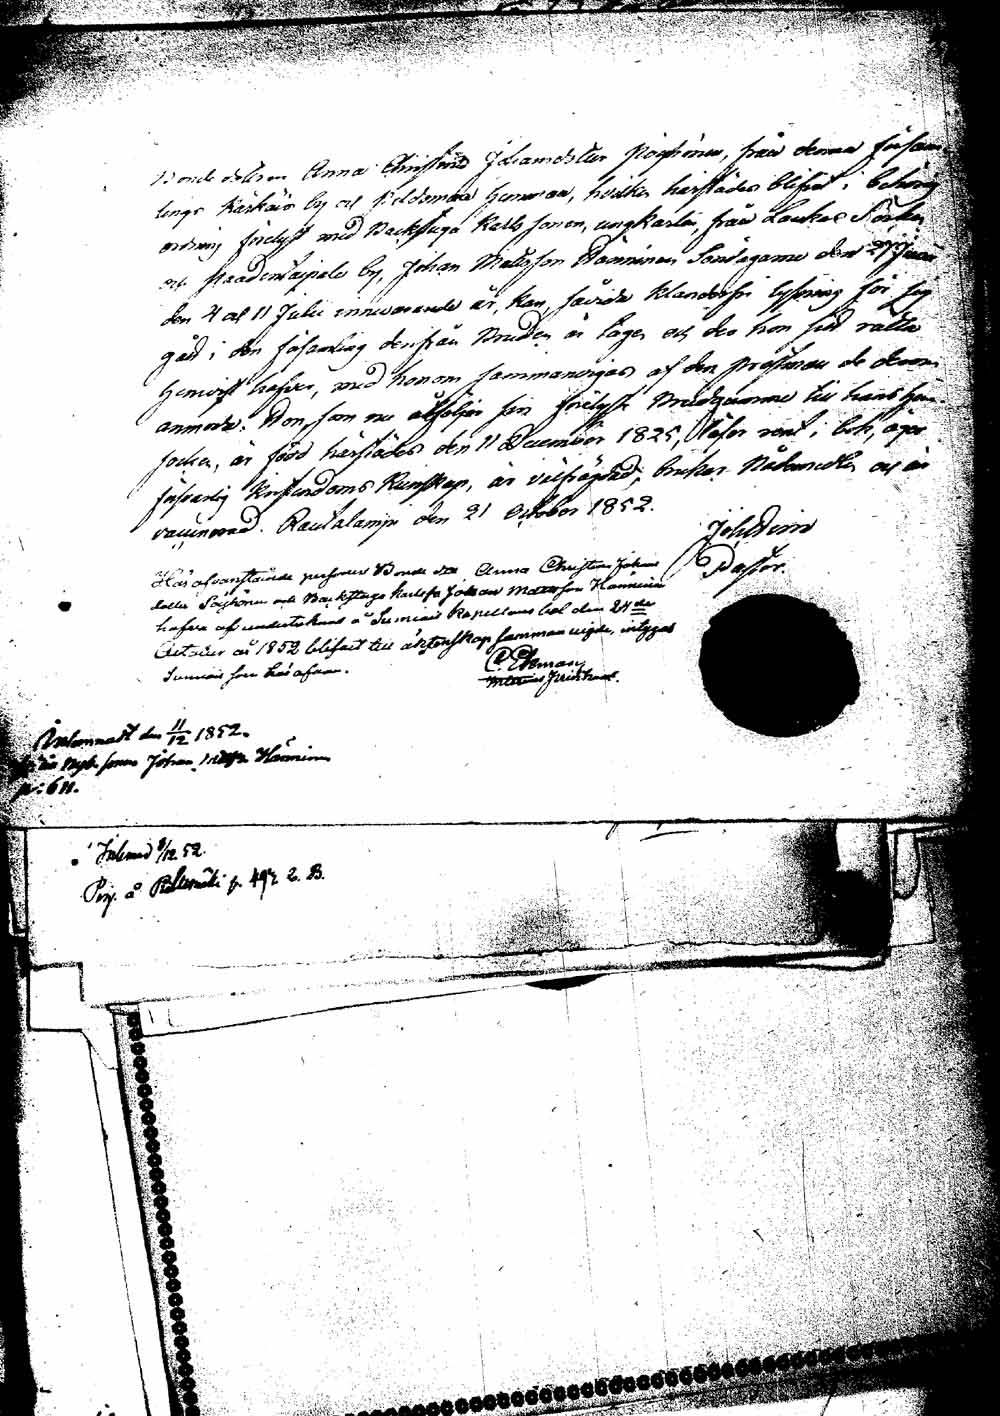 Bonde dottren Anna Christina Johansdotter från denna försam-
lings Kärkäis by och hemman, hvilken härstädes blifvit i behörig
ordning förlyst med Backstugu Karls sonen, ungkarlen, från Laukas Socken
och Paadentaipale by, Johan Matsson Hänninen Söndagarne den 27 Junii
den 4 och 11 Julii innevarande år, kan, såvida klanderfri lysning för sig
gått i den församling derifrån Bruden är tagen och der hon sitt rätta
hemvist hafver, med honom sammanvigas af den prestman de derom
anmoda. Hon, som nu åtföljer sin förelyste Brudgumme till hans hem-
socken, är född härstädes den 11 December 1825, läser rent i bok, äger
försvarlig kristendoms kunskap, är välfrägdad, brukar Nådemedlen och är
vaccinerad. Rautalampi den 21 October 1852.
Joh
Pastor.
Här ofvanstående personer Bonde dottren Anna Christina Johans
dotter och Backstugu Karls sonen Johan Matsson Hänninen
hafva af undertecknad å Sumiais Kapellans bol den 24de
October år 1852 blifvit till äktenskap sammanvigde, intygas
Sumiais som här ofvan.
C. Ekman
Inlemnadt den 11/12 1852.
Johan Matss. Hänninen
p: 611.
Inlemnad 8/12 52.
Pig. å p. 492 2. B.